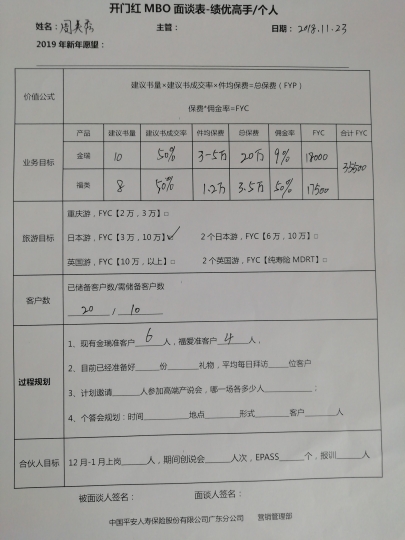 开门红 MBO 面谈表-绩优高手/个人
姓名: 主管: 日期: 2018.11.23
2019 年新年愿望:
价值公式
建议书量×建议书成交率×件均保费=总保费(FYP)
保费*佣金率=FYC
业务目标
产品 建议书量 建议书成交率 件均保费 总保费 佣金率 FYC 合计 FYC
金瑞 10 50% 3-5万 20万 9% 18000 35500
福类 8 50% 1.2万 3.5万 50% 17500
旅游目标
重庆游,FYC【2 万,3 万】□
日本游,FYC【3 万,10 万】☑ 2 个日本游,FYC【6 万,10 万】□
英国游,FYC【10 万,以上】□ 2 个英国游,FYC【纯寿险 MDRT】□
客户数
已储备客户数/需储备客户数
20 / 10
过程规划
1、现有金瑞准客户 6 人,福爱准客户 4 人,
2、目前已经准备好____份____礼物,平均每日拜访____位客户
3、计划邀请____人参加高端产说会,哪一场各多少人____;
4、个答会规划:时间____地点____形式____客户____人
合伙人目标
12 月-1 月上岗____人,期间创说会____人次,EPASS____个,报训____人
被面谈人签名: 面谈人签名:
中国平安人寿保险股份有限公司广东分公司 营销管理部